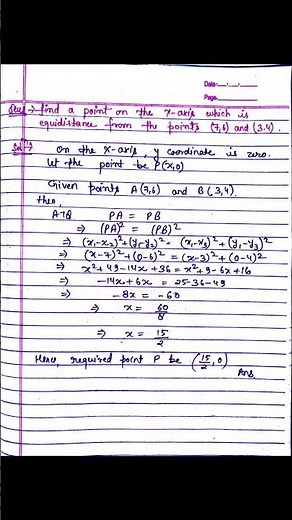 Date:__.__.__
Page______
Que → find a point on the x-axis which is
equidistance from the points (7,6) and (3.4).
Sol → On the x-axis, y coordinate is zero.
Let the point be P(x,0)
Given points A(7,6) and B(3,4).
then,
ATQ PA = PB
⇒ (PA)² = (PB)²
⇒ (x₁-x₂)²+(y₁-y₂)² = (x₁-x₃)²+(y₁-y₃)²
⇒ (x-7)²+(0-6)² = (x-3)²+(0-4)²
⇒ x²+49-14x+36 = x²+9-6x+16
⇒ -14x+6x = 25-36-49
⇒ -8x = -60
⇒ x = 60/8
⇒ x = 15/2
Here, required point P be (15/2, 0)
Ans